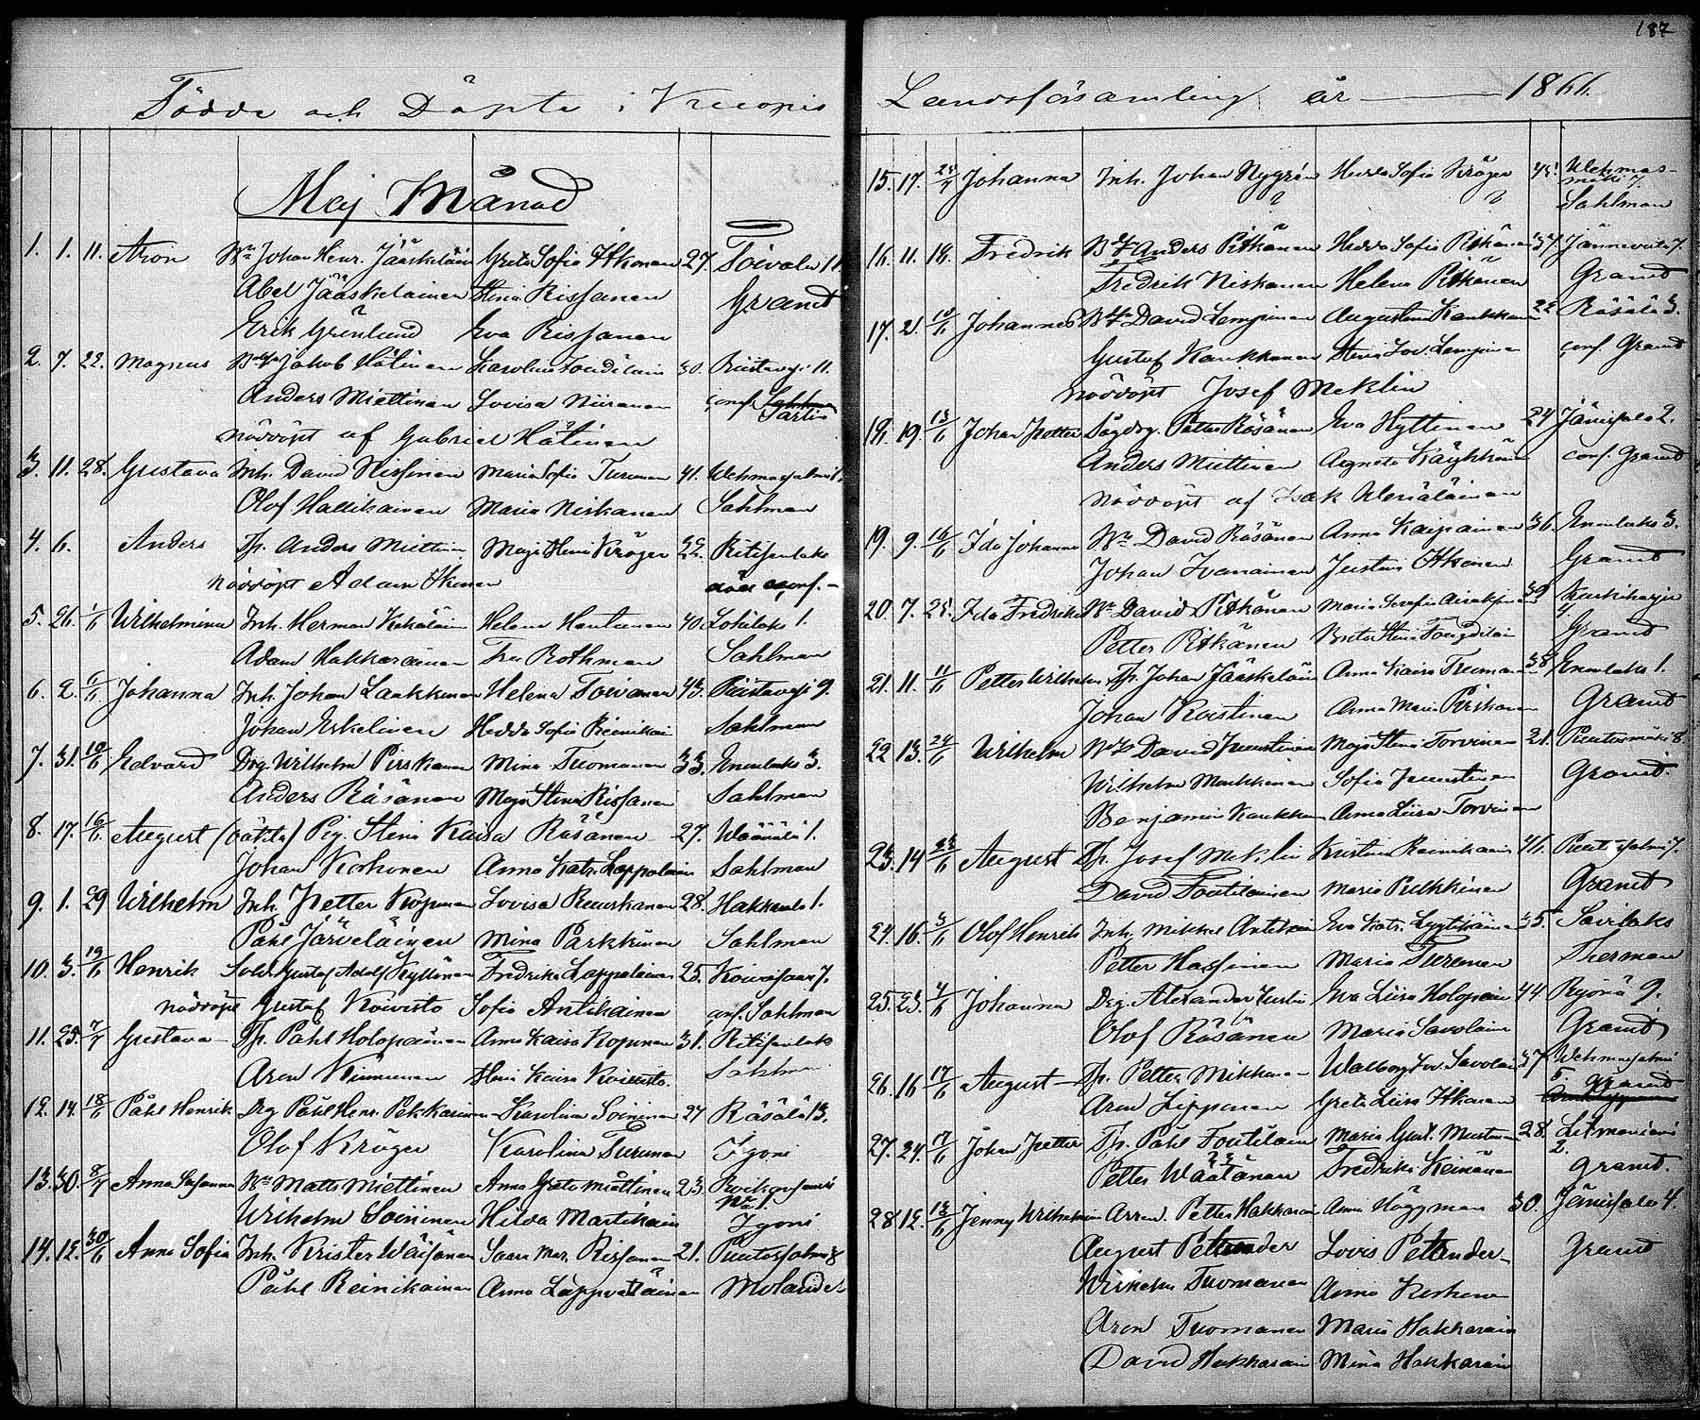 187
Födde och Döpte i Kuopio Landsförsamling år 1866.
Maj Månad
1. 1. 11. Aron Johan Henr. Jääskeläin Greta Sofia Itkonen 27. Toivala 11
Abel Jääskelainen Stina Rissanen Grand
Erik Grönlund Eva Rissanen
2. 7. 22. Magnus Jakob Hätinen Karolina 30. 11.
Anders Miettinen Lovisa Niiranen conf.
nöddöpt af Gabriel Hätinen
3. 11. 28. Gustava Inh. David Nissinen Maria Sofia Turunen 41. Wehmasalmi 1.
Olof Hallikainen Maria Niskanen Sahlman
4. 6. Anders Tp. Anders Miettin Maja Stina Kröger 22. Ritisenlaks
nöddöpt Adam Ikonen död conf.
5. 26. 1/6 Wilhelmina Inh. Herman Helena Hentunen 40. Lohilaks 1.
Adam Hakkarainen Fru Rothman Sahlman
6. 2. Johanna Inh. Johan Laakkonen Helena Toivanen 43. 9.
Johan Eskelinen Hedda Sofia Reinikai Sahlman
7. 31. 10/6 Edvard Drg. Wilhelm Pirskanen Mina Tuomanen 33. Enonlaks 3.
Anders Räsänen Maja Stina Rissanen Sahlman
8. 17. 16/6 August (oäkta) Pig. Stina Kaisa Räsänen 27. Wäänälä 1.
Johan Korhonen Anna Katr. Lappalain Sahlman
9. 1. 29 Wilhelm Inh. Petter Kopunen Lovisa Ruuskanen 28. Hakkarala 1.
Påhl Järveläinen Mina Parkkinen Sahlman
10. 3. 19/6 Henrik Sold. Gustaf Adolf Kyllönen Fredrika Lappalainen 25. Koivusaari 7.
nöddöpt Gustaf Koivisto Sofia Antikainen conf. Sahlman
11. 25. 7/7 Gustava Tp. Påhl Holopainen Anna Kaisa Kopunen 31. Ritisenlaks
Aron Kinnunen Stina Kaisa Koivisto. Sahlman
12. 14. 18/6 Påhl Henrik Drg Påhl Henr. Pekkarinen Karolina Soininen 27 Räsälä 13.
Olof Kröger Karolina Turunen Igoni
13. 30. 8/7 Anna Susanna Matts Miettinen Anna Greta Miettinen 23.
Wilhelm Soininen Hilda Martikain Igoni
14. 12. 30/6 Anna Sofia Inh. Krister Wäisänen Saara Mar. Rissanen 21. Puutosalmi 8
Påhl Reinikainen Anna Lappveteläinen Molander
15. 17. 24/7 Johanna Inh. Johan Nygrén Hedda Sofia Kröger 45. Wehmasmäki 7.
Sahlman
16. 11. 18. Fredrik Anders Pitkänen Hedda Sofia 37. Jännevirta 7.
Fredrik Niskanen Helena Pitkänen Grand
17. 2. 10/6 Johannes David Lempinen Augustina Kaukkanen 22 Räsälä 3.
Gustaf Kaukkanen Stina Lov. Lempinen conf. Grand
nöddöpt Josef Meklin
18. 19. 13/6 Johan Petter Sågdrg. Petter Räsänen Eva Hyttinen 24 Jänissalo 2.
Anders Miettinen Agneta Käyhkönen conf. Grand
nöddöpt af Isak Weriäläinen
19. 9. 16/6 Ida Johanna David Räsänen Anna Kaipainen 36. Enonlaks 3.
Johan Ivanainen Justina Itkonen Grand
20. 7. 25. Ida Fredrika David Pitkänen Maria Serafia 39 Kurkiharju
Petter Pitkänen Brita Stina Grand
21. 11. 11/6 Petter Wilhelm Tp. Johan Jääskeläin Anna Kaisa Tuomanen 38 Enonlaks 1.
Johan Kristinen Anna Maria Grand
22 13. 24/6 Wilhelm David Juustinen Maja Stina Torvinen 21. 8.
Wilhelm Markkanen Sofia Juustinen Grand.
Benjamin Kaukkanen Anna Lisa Torvinen
23. 14 August Tp. Josef Meklin Kristina Reinikain 41. Puutosalmi 7.
David Foutilainen Maria Pulkkinen Grand
24. 16. 3/6 Olof Henrik Inh. Mikkel Antikain Eva Katr. Lyytikäin 35. Savilaks
Petter Hassinen Maria Turunen Therman
25. 23. 4/6 Johanna Drg. Alexander Eva Lisa Holopain 44 Ryönä 9.
Olof Räsänen Maria Savolain Grand
26. 16 17/6 August Tp. Petter Mikkanen Walborg Lov. Savolain 37 Wehmasalmi
Aron Lipponen Greta Lisa Itkonen 5. Grand
27. 24. 17/6 Johan Petter Tp. Påhl Foutilain Maria Gust. Mustonen 28. Litmaniemi
Petter Wäätänen Fredrika Keinänen 2. Grand.
28 12. 13/6 Jenny Wilhelmin Arren. Petter Hakkarain Anna Häggman 30. Jänissalo 4.
August Pettender Lovis Pettender Grand
Wilhelm Tuomanen Anna Korhonen
Aron Tuomanen Maria Hakkarain
David Hakkarain Mina Hakkarain